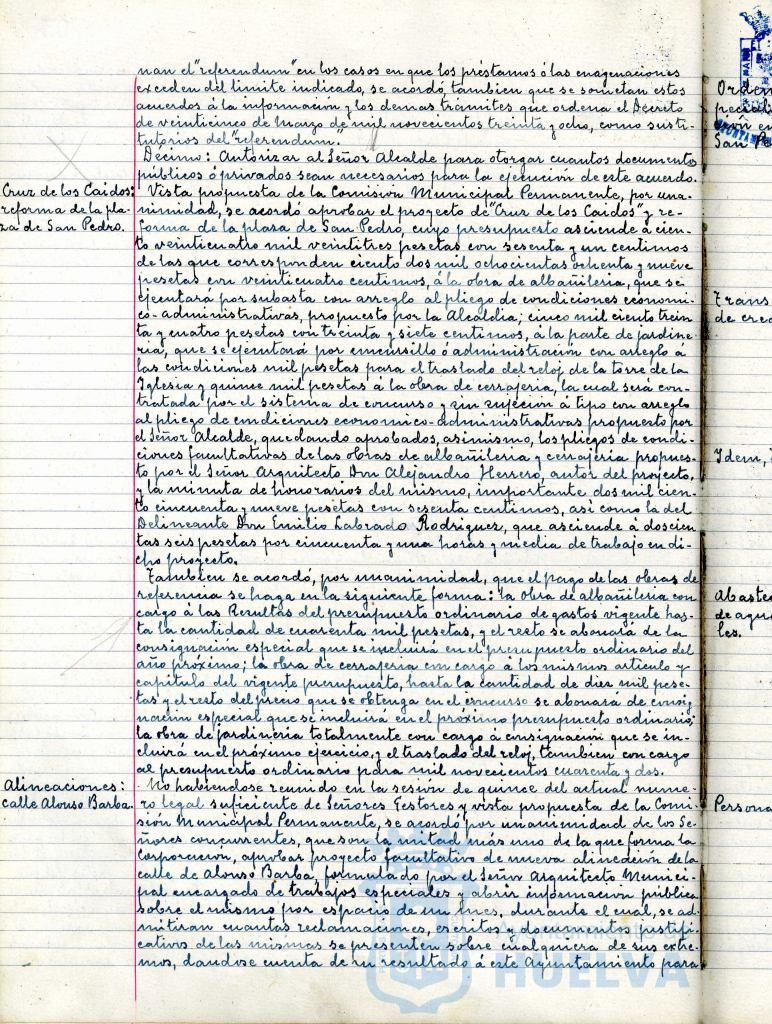 nan el "referendum" en los casos en que los préstamos ó las enagenaciones
exceden del limite indicado, se acordó, tambien que se sometan estos
acuerdos á la informacion y los demas trámites que ordena el Decreto
de veinticinco de Marzo de mil novecientos treinta y ocho, como susti-
tutorios del "referendum."
Decimo: Autorizar al Señor Alcalde para otorgar cuantos documentos
públicos ó privados sean necesarios para la ejecucion de este acuerdo.
Cruz de los Caidos:
reforma de la pla-
za de San Pedro.
Vista propuesta de la Comisión Municipal Permanente, por una-
nimidad, se acordó aprobar el proyecto de "Cruz de los Caidos" y re-
forma de la plaza de San Pedro, cuyo presupuesto asciende á cien-
to veinticuatro mil veintitres pesetas con sesenta y un centimos
de las que corresponden ciento dos mil ochocientas ochenta y nueve
pesetas con veinticuatro centimos, á la obra de albañileria, que se
ejecutará por subasta con arreglo al pliego de condiciones economi-
co-administrativas, propuesto por la Alcaldia; cinco mil ciento trein
ta y cuatro pesetas con treinta y siete centimos, á la parte de jardine-
ria, que se ejecutará por concursillo ó administracion con arreglo á
las condiciones mil pesetas para el traslado del reloj de la torre de la
Iglesia y quince mil pesetas á la obra de cerrajeria, la cual será con-
tratada por el sistema de concurso y sin sujecion á tipo con arreglo
al pliego de condiciones economico-administrativas propuesto por
el Señor Alcalde, quedando aprobados, asimismo, los pliegos de condi-
ciones facultativas de las obras de albañileria y cerrajeria propues-
to por el Señor Arquitecto Don Alejandro Herrero, autor del proyecto,
y la minuta de honorarios del mismo, importante dos mil cien-
to cincuenta y nueve pesetas con sesenta centimos, así como la del
Delineante Don Emilio Labrado Rodriguez, que asciende á doscien-
tas seis pesetas por cincuenta y una horas y media de trabajo en di-
cho proyecto.
Tambien se acordó, por unanimidad, que el pago de las obras de
referencia se haga en la siguiente forma: la obra de albañileria con
cargo á las Resultas del presupuesto ordinario de gastos vigente has-
ta la cantidad de cuarenta mil pesetas, y el resto se abonará de la
consignacion especial que se incluirá en el presupuesto ordinario del
año próximo; la obra de cerrajeria con cargo á los mismos articulo y
capitulo del vigente presupuesto, hasta la cantidad de diez mil pese-
tas y el resto del precio que se obtenga en el concurso se abonará de consig-
nacion especial que se incluirá en el próximo presupuesto ordinario;
la obra de jardineria totalmente con cargo á consignacion que se in-
cluirá en el próximo ejercicio, y el traslado del reloj, tambien con cargo
al presupuesto ordinario para mil novecientos cuarenta y dos.
Alineaciones:
calle Alonso Barba.
No habiendose reunido en la sesión de quince del actual nume-
ro legal suficiente de Señores Gestores y vista propuesta de la Comi-
sión Municipal Permanente, se acordó por unanimidad de los Se-
ñores concurrentes, que son la mitad más uno de la que forma la
Corporacion, aprobar proyecto facultativo de nueva alineación de la
calle de Alonso Barba, formulado por el Señor Arquitecto Munici-
pal encargado de trabajos especiales y abrir informacion pública
sobre el mismo por espacio de un mes, durante el cual, se ad-
mitiran cuantas reclamaciones, escritos y documentos justifi-
cativos de las mismas se presenten sobre cualquiera de sus extre-
mos, dandose cuenta de su resultado á este Ayuntamiento para
Orden
pecial
ión en
San Pe
Trans
de cred
Idem, I
Abaste
de agu
les.
Persona
HUELVA